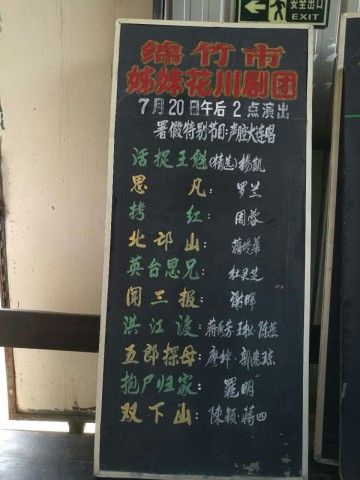 安全出口
EXIT
绵竹市
姊妹花川剧团
7月20日午后2点演出
暑假特别节目:声腔大连唱
活捉王魁(精选)杨凯
思凡:罗兰
拷红:周蓉
北邙山:蒋晓华
英台思兄:杜灵芝
闯三报:谢晖
洪江渡:蒋秀芳·王松·陈燕
五郎探母:廖坤·郭惠琼
抱尸归家:罗明
双下山:陈颖·蒋四